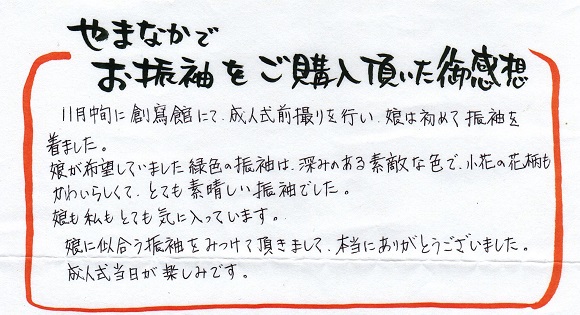 やまなかで
お振袖をご購入頂いた御感想
11月中旬に創寫館にて、成人式前撮りを行い、娘は初めて振袖を
着ました。
娘が希望していました緑色の振袖は、深みのある素敵な色で、小花の花柄も
かわいらしくて、とても素晴しい振袖でした。
娘も私もとても気に入っています。
娘に似合う振袖をみつけて頂きまして、本当にありがとうございました。
成人式当日が楽しみです。